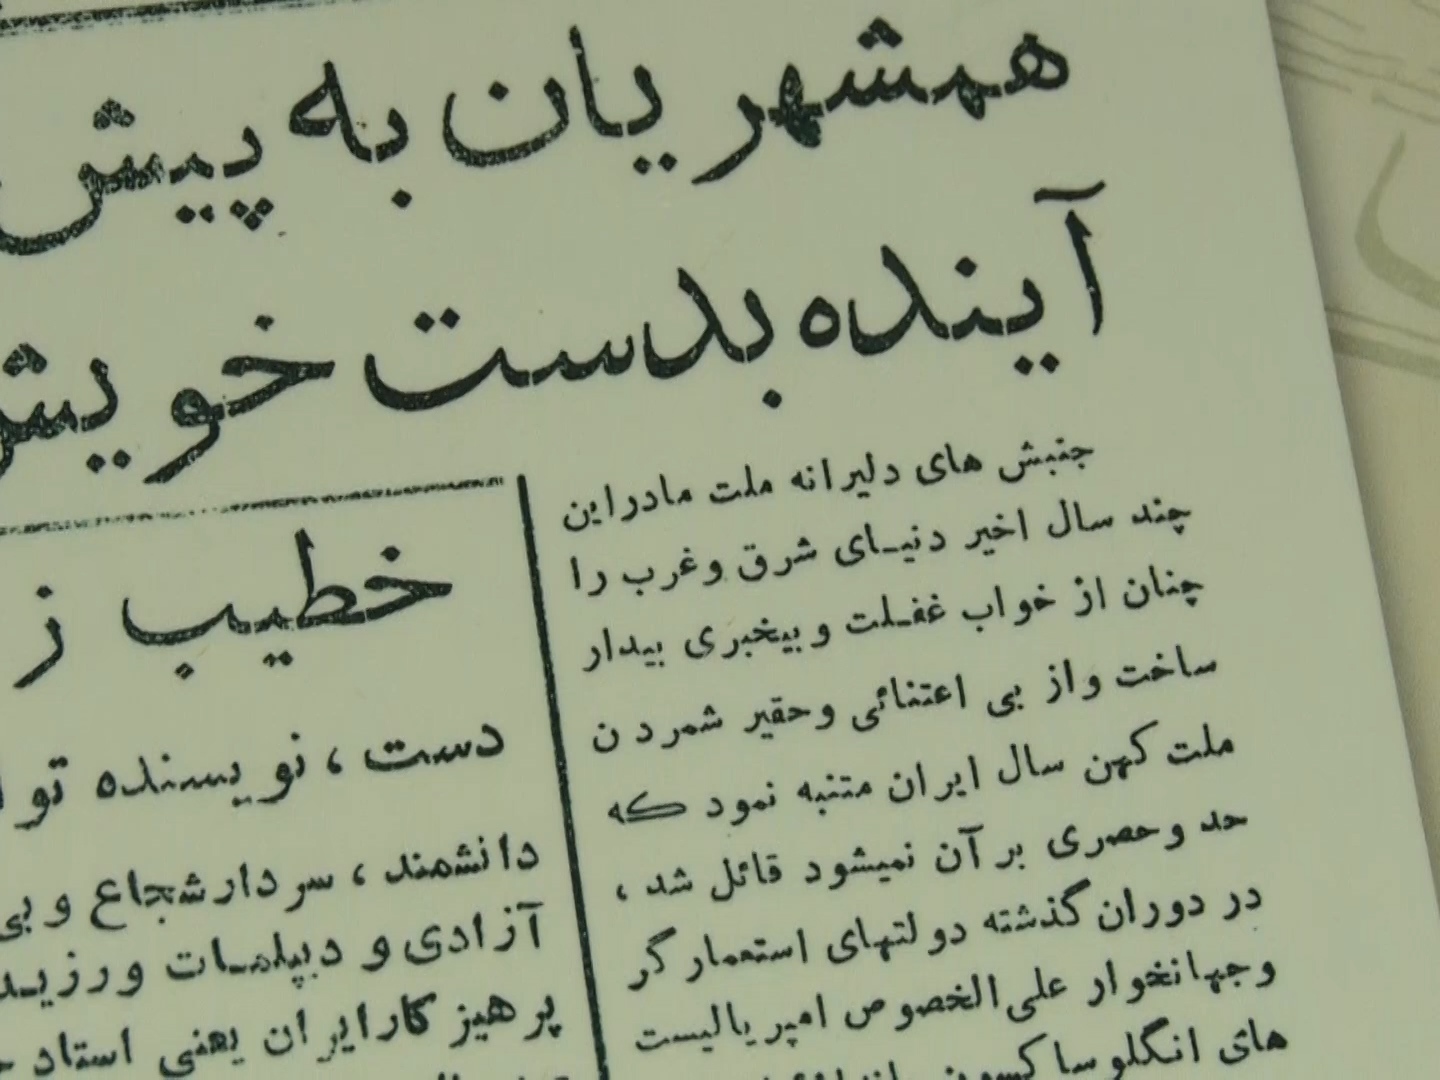 همشهریان به پیش
آینده بدست خویش
جنبش های دلیرانه ملت مادراین
چند سال اخیر دنیای شرق وغرب را
چنان از خواب غفلت وبیخبری بیدار
ساخت واز بی اعتنائی وحقیر شمردن
ملت کهن سال ایران متنبه نمود که
حد وحصری برآن نمیشود قائل شد ،
در دوران گذشته دولتهای استعمارگر
وجهانخوار علی‌الخصوص امپریالیست
های انگلوساکسون
خطیب ز
دست ، نویسنده توا
دانشمند ، سردارشجاع و بی
آزادی و دیپلمات ورزید
پرهیزکارایران یعنی استاد